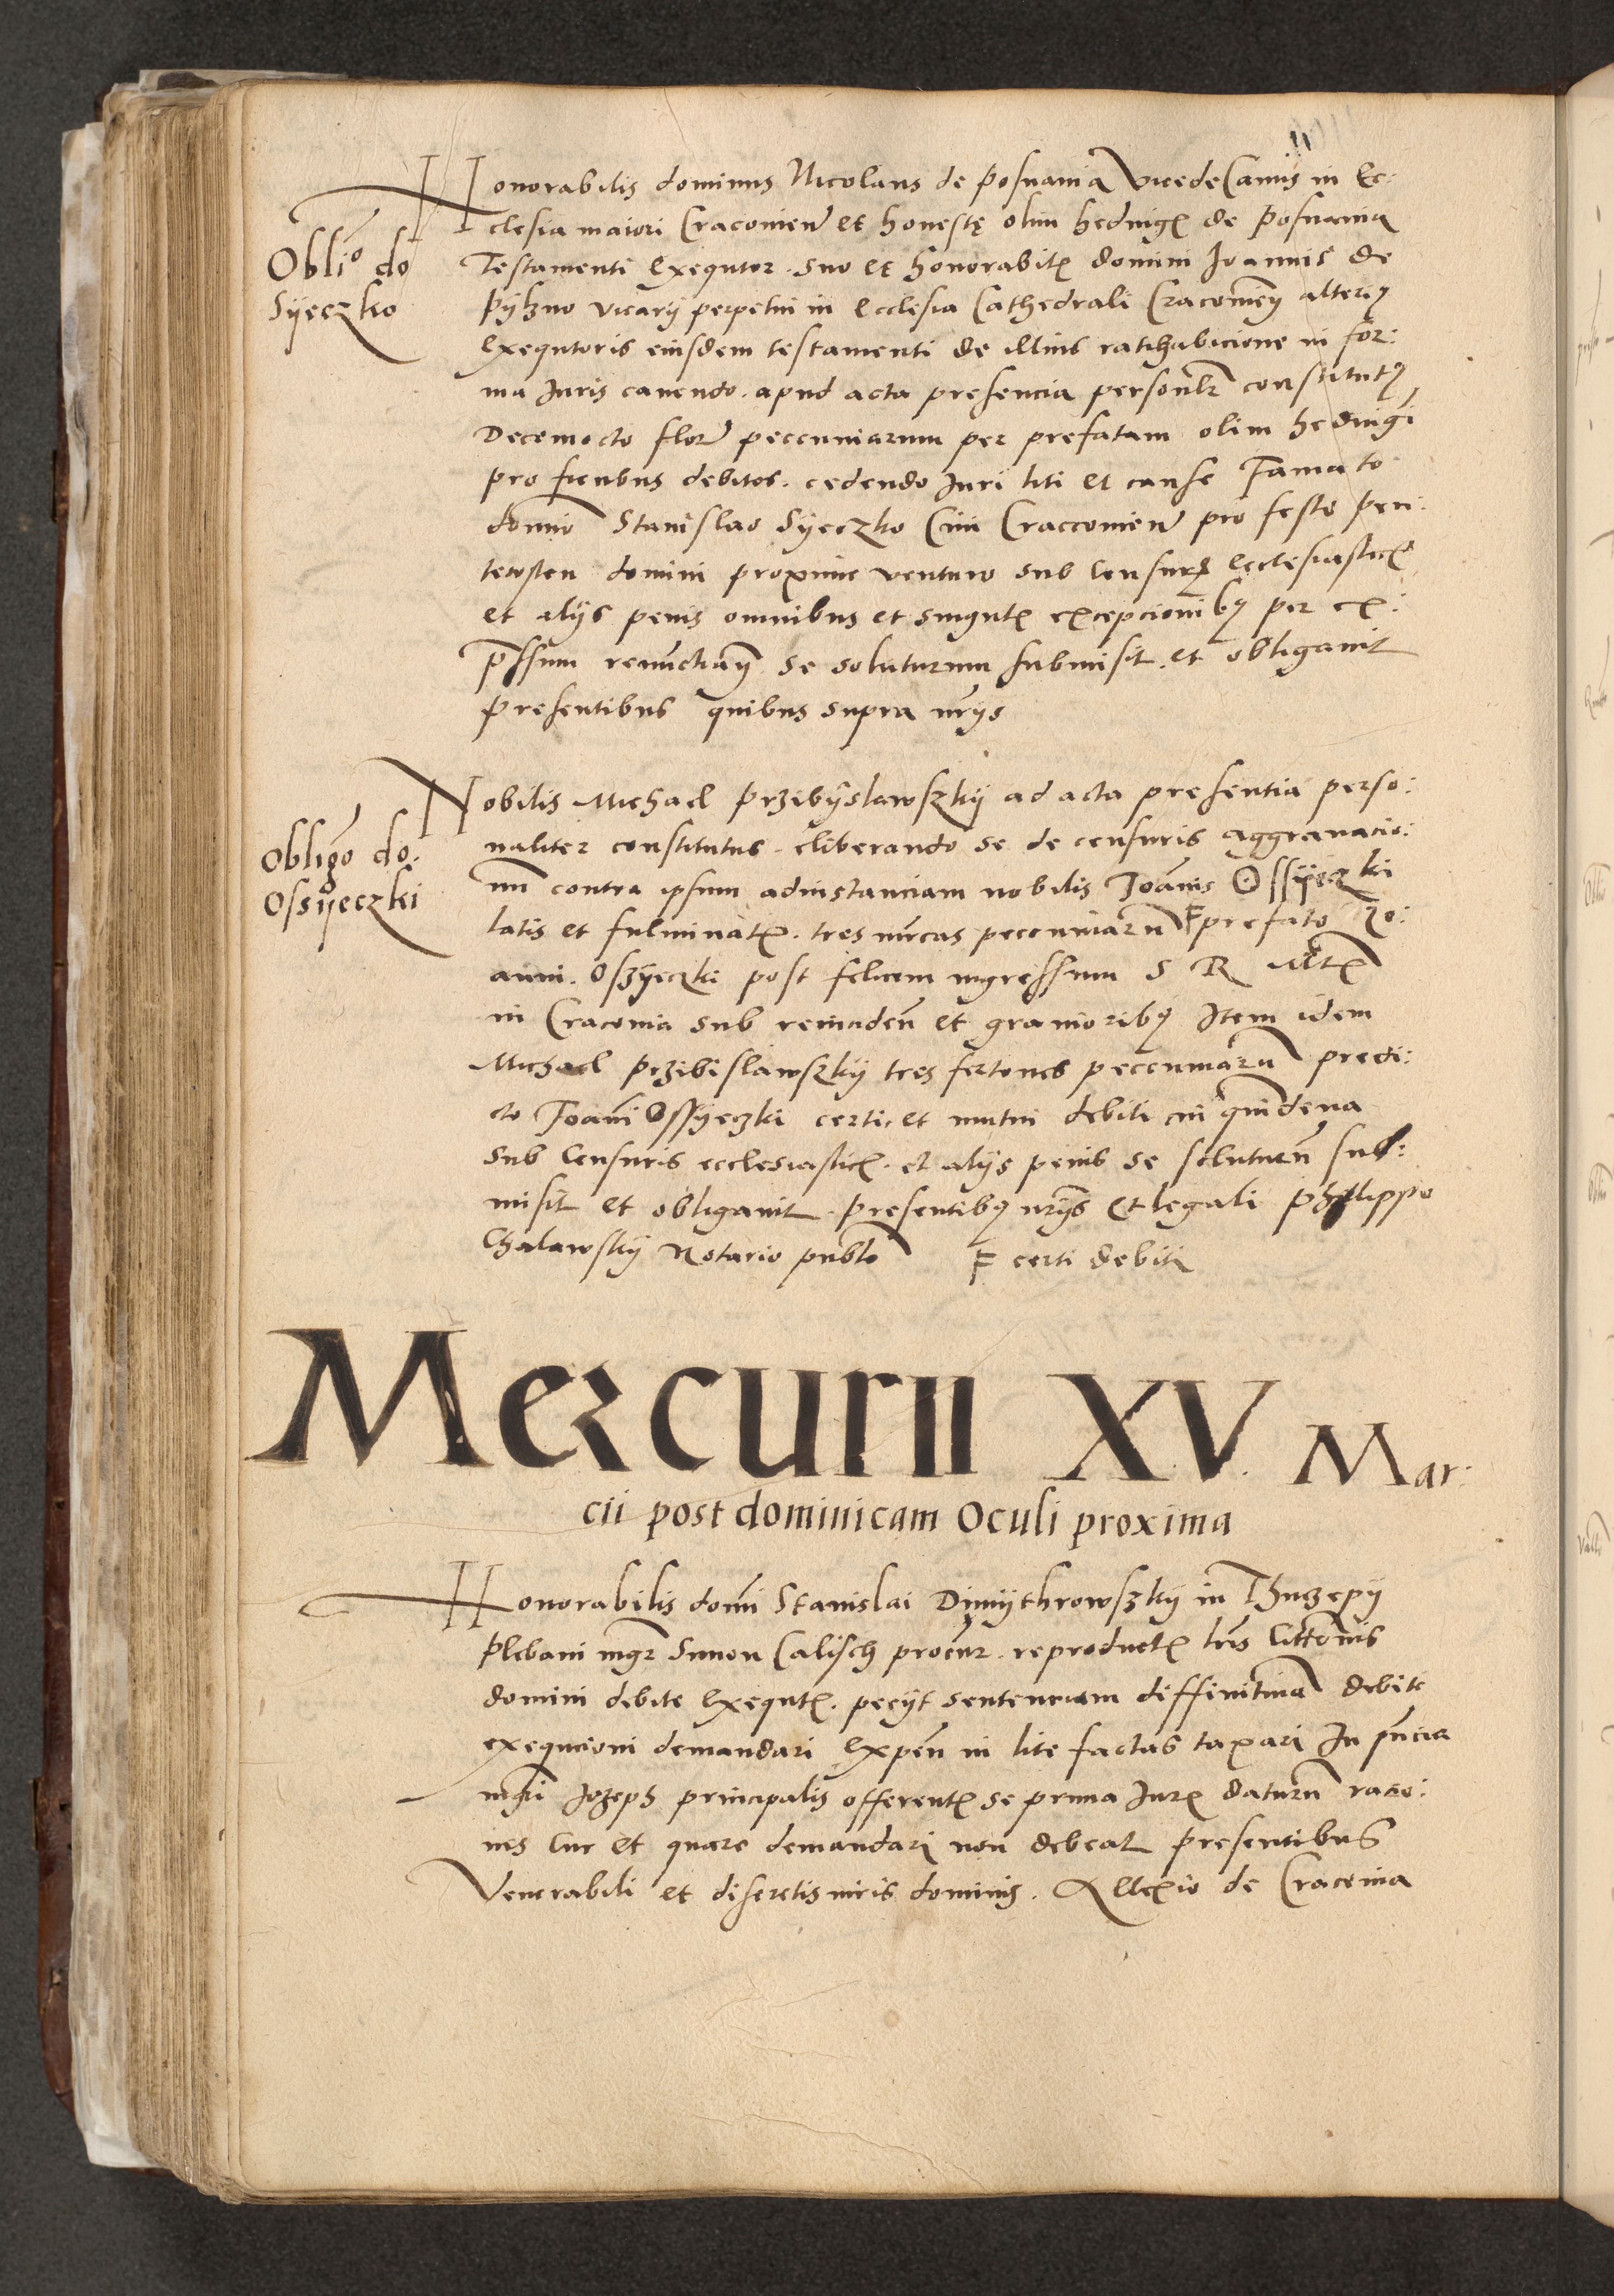 Honorabilis dominus Nicolaus de Posnania vicedecanus in Ec:
clesia maiori Cracovien et honestę olim hedvigis de Posnania
Obligo do
Syeczko
Testamenti exequtor suo et honorabilis domini Ioannis de
Pyzno vicarij perpetui in Ecclesia Cathedrali Cracovien alterius
exequtoris eiusdem testamenti de illius ratihabicione in for:
ma Iuris cavendo. apud acta presencia personlr constitutus
Decemocto flor peccuniarum per prefatam olim hedvigi
pro debitos. cedendo Iuri liti et cause Famato
domino Stanislao Syeczko Civi Craccovien pro festo pen:
tecosten domini proxime venturo sub Censuris Ecclesiasticis
et alijs penis omnibus et singulis excepcionibus per ex:
pressum se soluturum submisit. et obligavit
presentibus quibus supra nrijs
Nobilis Michael Przibyslawszky ad acta presentia perso:
naliter constitutus. eliberando se de censuris aggravacio:
Obligo do:
Ossyeczki
num contra ipsum adinstanciam nobilis Joannis Ossyeczki
latis et fulminatis. tres mrcas peccuniarum prefato Io:
anni. Oszyeczki post felicem ingressum S R Mtis
in Cracovia sub reinciden et gravioribus Item idem
Michael Przibislawszky tres fertones peccuniarum predi:
cto Joanni Ossyeczki certi et mutui debiti in quindena
sub Censuris ecclesiasticis. et alijs penis se soluturum sub:
misit et obligavit. presentibus nrijs et legali Philippo
Chalawsky Notario publico F certi debiti
Mercurii XV. Mar:
cii post dominicam Oculi proxima
Honorabilis domini Stanislai Dimythrowszky in Thuczepy
Plebani mgr Simon Calisch procur. reproductis lris Citt̄onis
domini debite Exequtis. peciit sentenciam diffinitivam debite
exequcioni demandari Expen in lite factas taxari In pncia
mgri Iozeph principalis offerentis se prima Iuris daturum racio:
nes Cur et quare demandari non debeat presentibus
Venerabili et discretis viris dominis. Allexio de Cracovia